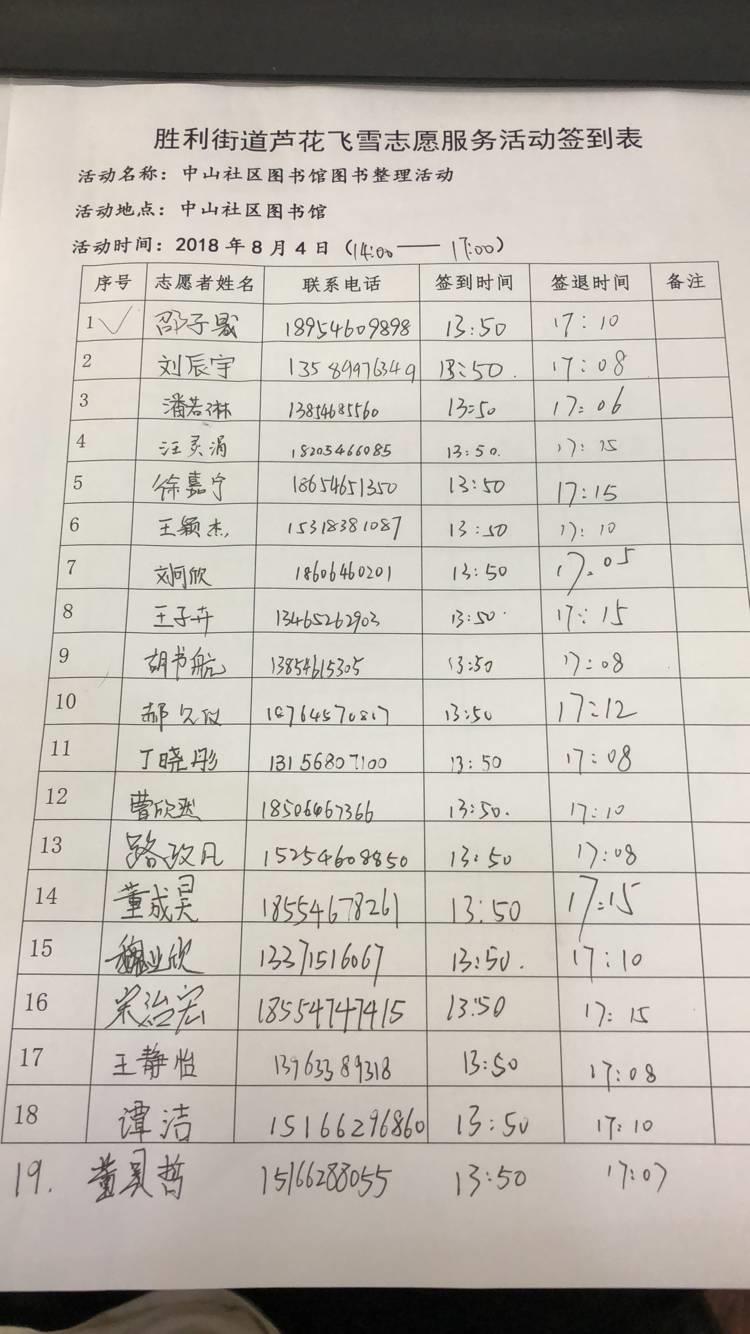 胜利街道芦花飞雪志愿服务活动签到表
活动名称：中山社区图书馆图书整理活动
活动地点：中山社区图书馆
活动时间：2018 年 8 月 4 日（14:00——17:00）
序号 志愿者姓名 联系电话 签到时间 签退时间 备注
1 ✓ 邵子晟 18954609898 13:50 17:10
2 刘辰宇 13589976349 13:50. 17:08
3 潘若琳 13854685560 13:50 17:06
4 汪灵涓 18205466085 13:50. 17:15
5 徐嘉宁 18654651350 13:50 17:15
6 王颖杰 15318381087 13:50 17:10
7 刘珂欣 18606460201 13:50 17:05
8 王子卉 13465262903 13:50 17:15
9 胡书航 13854615305 13:50 17:08
10 郝久仪 13:50 17:12
11 丁晓彤 13156807100 13:50 17:08
12 曹欣然 18506467366 13:50. 17:10
13 路政凡 15254608850 13:50 17:08
14 董成昊 18554678261 13:50 17:15
15 业欣 13371516067 13:50. 17:10
16 宋治宏 18554747415 13:50 17:15
17 王静怡 13963389318 13:50 17:08
18 谭洁 15166296860 13:50 17:10
19. 董昊哲 15166288055 13:50 17:07